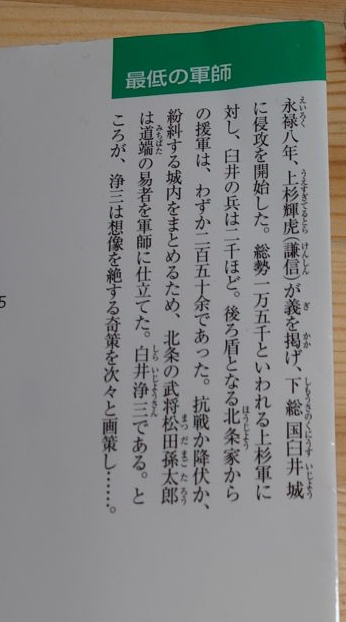 最低の軍師
永禄八年、上杉輝虎(謙信)が義を掲げ、下総国臼井城
に侵攻を開始した。総勢一万五千といわれる上杉軍に
対し、臼井の兵は二千ほど。後ろ盾となる北条家から
の援軍は、わずか二百五十余であった。抗戦か降伏か、
紛糾する城内をまとめるため、北条の武将松田孫太郎
は道端の易者を軍師に仕立てた。白井浄三である。と
ころが、浄三は想像を絶する奇策を次々と画策し……。
5